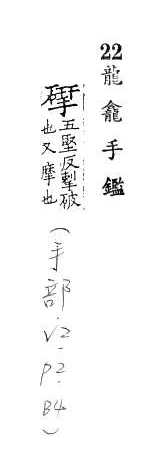 22 龍龕手鑑
揅
五堅反破
也又摩也
(手部.V2.P2.B4)